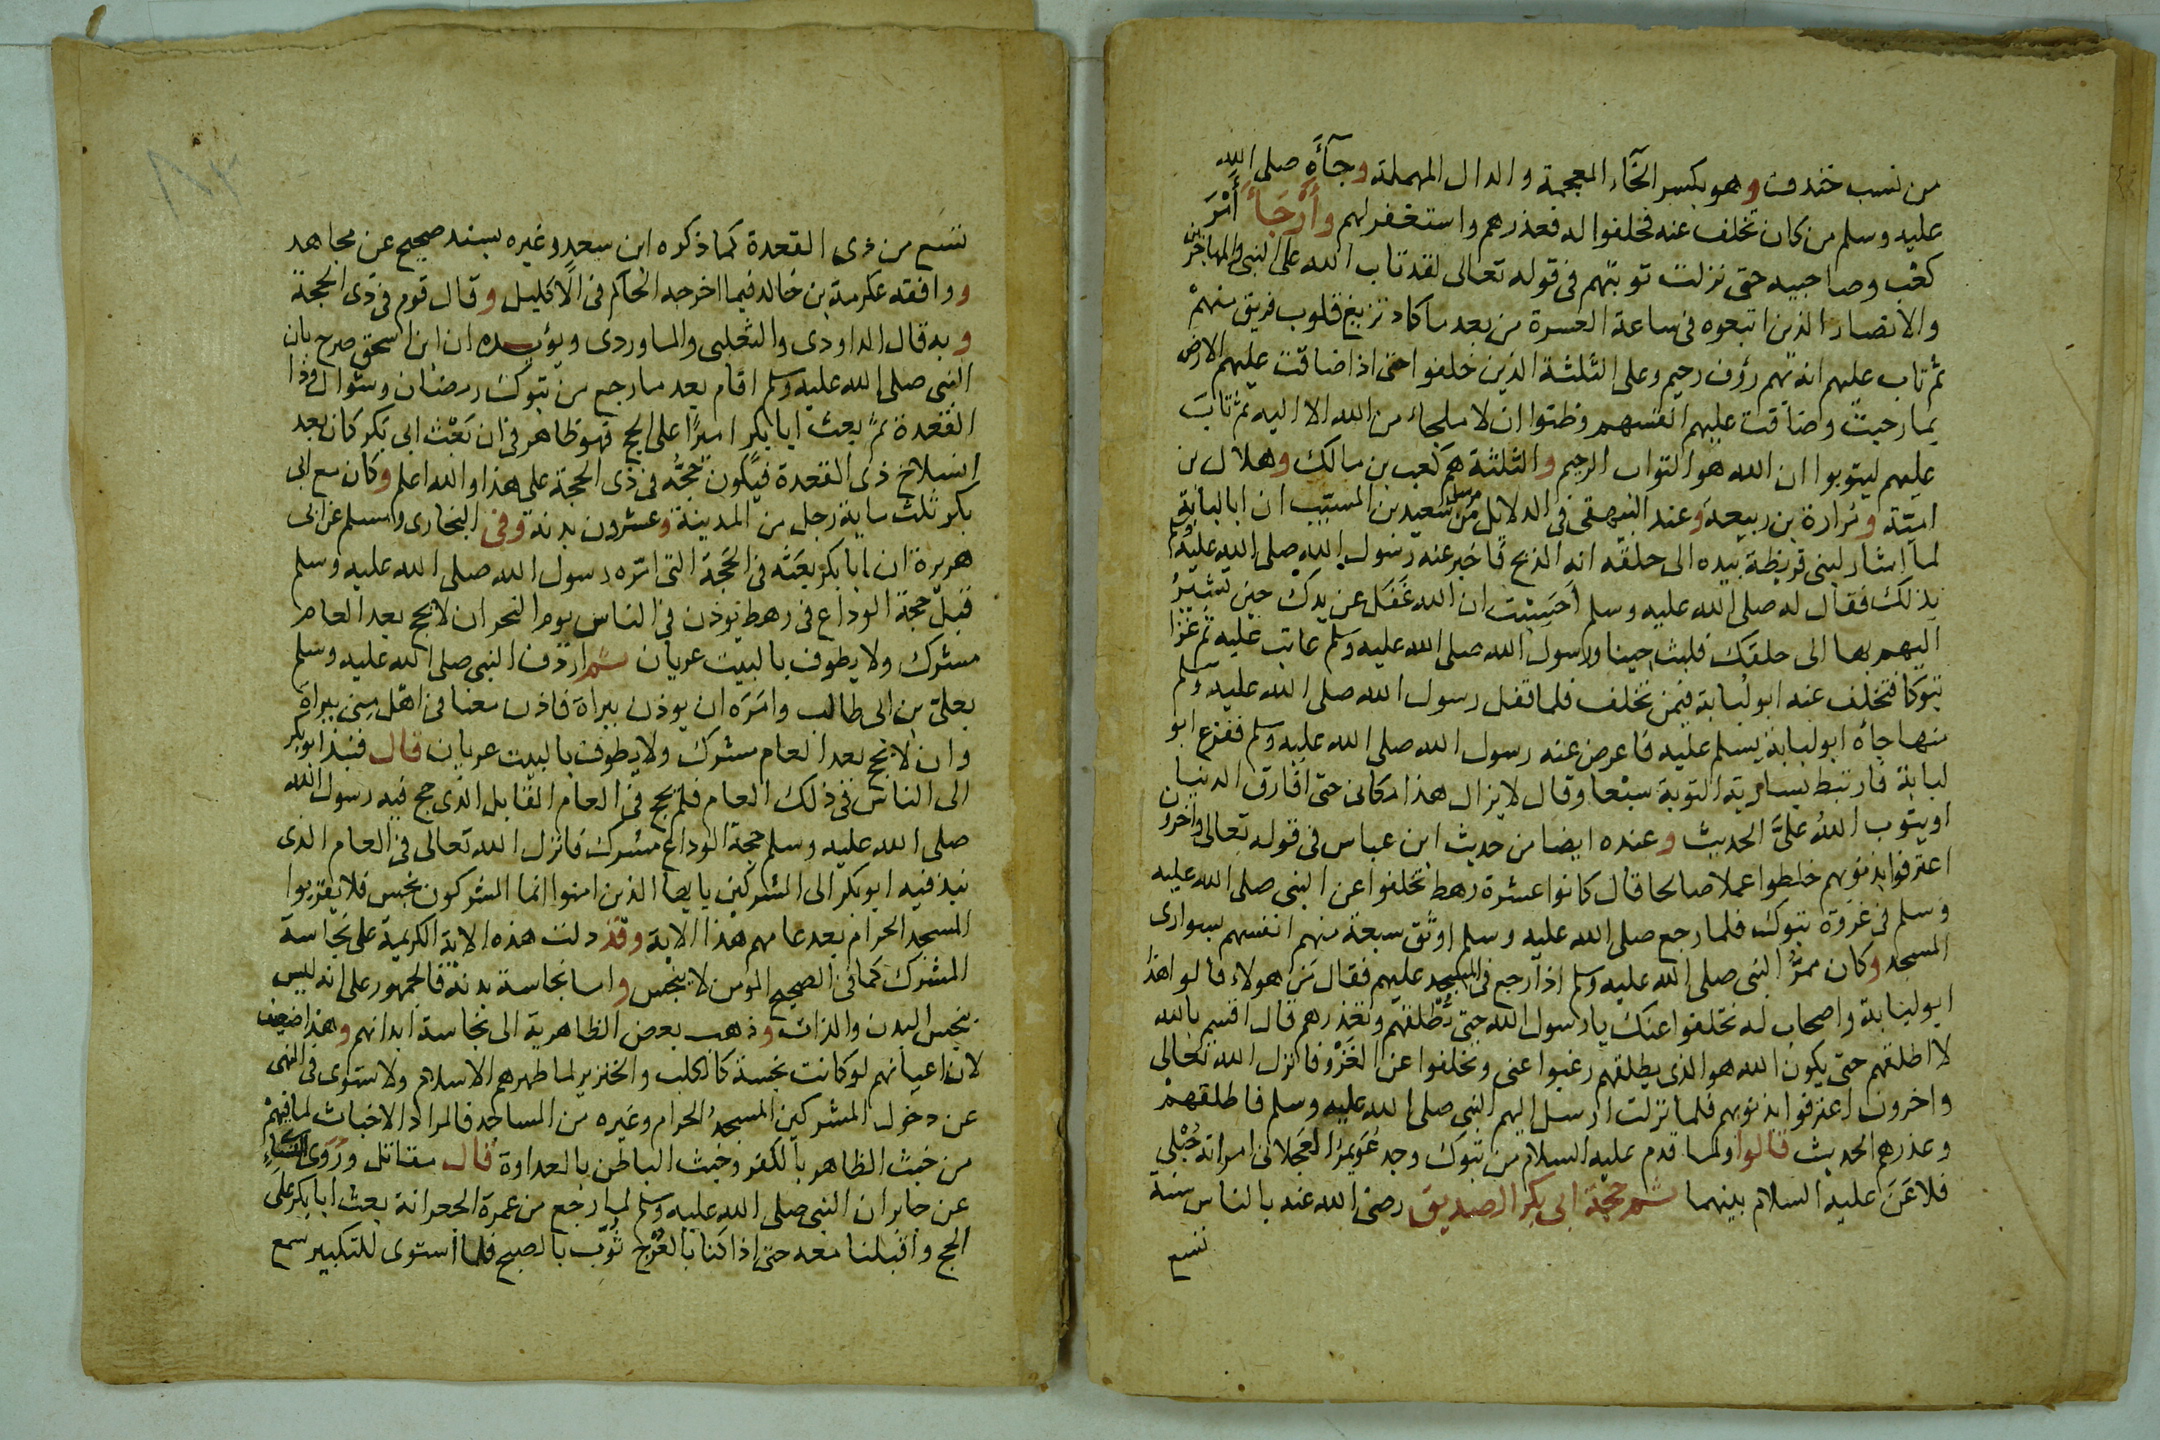 من نسب خندف وهو بكسر الخآء المعجمة والدال المهملة وجآءه صلى الله
عليه وسلم من كان تخلف عنه فحلفوا له فعذرهم واستغفر لهم وأرجأ أمر
كعب وصاحبيه حتى نزلت توبتهم فى قوله تعالى لقد تاب الله على النبى والمهاجرين
والانصار الذين اتبعوه فى ساعة العسرة من بعد ما كاد تزيغ قلوب فريق منهم
ثم تاب عليهم انه بهم رؤف رحيم وعلى الثلثة الذين خلفوا حتى اذا ضاقت عليهم الارض
بما رحبت وضاقت عليهم انفسهم وظنوا ان لا ملجاء من الله الا اليه ثم تاب
عليهم ليتوبوا ان الله هو التواب الرحيم والثلثة هم كعب بن مالك وهلال بن
امية ومرارة بن ربيعة وعند البيهقى فى الدلائل من مرسل سعيد بن المسيب ان ابا لبابة
لما اشار لبنى قريظة بيده الى حلقه انه الذبح فاخبر عنه رسول الله صلى الله عليه وسلم
بذلك فقال له صلى الله عليه وسلم احسبت ان الله غفل عن يدك حين تشير
اليهم بها الى حلقك فلبث حينا ورسول الله صلى الله عليه وسلم عاتب عليه ثم غزا
تبوكا فتخلف عنه ابو لبابة فيمن تخلف فلما قفل رسول الله صلى الله عليه وسلم
منها جاءه ابو لبابة يسلم عليه فاعرض عنه رسول الله صلى الله عليه وسلم ففزع ابو
لبابة فارتبط بسارية التوبة سبعا وقال لا يزال هذا مكانى حتى افارق الدنيا
او يتوب الله علىّ الحديث وعنده ايضا من حديث ابن عباس فى قوله تعالى واخرون
اعترفوا بذنوبهم خلطوا عملا صالحا قال كانوا عشرة رهط تخلفوا عن النبى صلى الله عليه
وسلم فى غزوة تبوك فلما رجع صلى الله عليه وسلم اوثق سبعة منهم انفسهم بسوارى
المسجد وكان ممرّ النبى صلى الله عليه وسلم اذا رجع فى المسجد عليهم فقال من هولاء قالوا هذا
ابو لبابة واصحاب له تخلفوا عنك يا رسول الله حتى تطلقهم وتعذرهم قال اقسم بالله
لا اطلقهم حتى يكون الله هو الذى يطلقهم رغبوا عنى وتخلفوا عن الغزو فانزل الله تعالى
واخرون اعترفوا بذنوبهم فلما نزلت ارسل اليهم النبى صلى الله عليه وسلم فاطلقهم
وعذرهم الحديث قالوا ولما قدم عليه السلام من تبوك وجد عويمر العجلانى امراته حبلى
فلاعن عليه السلام بينهما ثم حجة ابى بكر الصديق رضى الله عنه بالناس سنة
تسع
تسع من ذى القعدة كما ذكره ابن سعد وغيره بسند صحيح عن مجاهد
ووافقه عكرمة بن خالد فيما اخرجه الحاكم فى الاكليل وقال قوم فى ذى الحجة
وبه قال الداودى والثعلبى والماوردى ويؤيده ان ابن اسحق صرح بان
النبى صلى الله عليه وسلم اقام بعد ما رجع من تبوك رمضان وشوال وذا
القعدة ثم بعث ابا بكر اميرا على الحج فهو ظاهر فى ان بعث ابى بكر كان بعد
انسلاخ ذى القعدة فيكون حجه فى ذى الحجة على هذا والله اعلم وكان مع ابى
بكر ثلث ماية رجل من المدينة وعشرون بدنة وفى البخارى ومسلم عن ابى
هريرة ان ابا بكر بعثه فى الحجة التى امره رسول الله صلى الله عليه وسلم
قبل حجة الوداع فى رهط يوذن فى الناس يوم النحر ان لا يحج بعد العام
مشرك ولا يطوف بالبيت عريان ثم اردف النبى صلى الله عليه وسلم
بعلى بن ابى طالب وامره ان يوذن ببراة فاذن معنا فى اهل منى ببراة
وان لا يحج بعد العام مشرك ولا يطوف بالبيت عريان قال فنبذ ابو بكر
الى الناس فى ذلك العام فلم يحج فى العام القابل الذى حج فيه رسول الله
صلى الله عليه وسلم حجة الوداع مشرك فانزل الله تعالى فى العام الذى
نبذ فيه ابو بكر الى المشركين يا يها الذين امنوا انما المشركون نجس فلا يقربوا
المسجد الحرام بعد عامهم هذا الاية وقد دلت هذه الاية الكريمة على نجاسة
المشرك كما فى الصحيح المومن لا ينجس واما نجاسة بدنه فالجمهور على انه ليس
بنجس البدن والذات وذهب بعض الظاهرية الى نجاسة ابدانهم وهذا ضعيف
لان اعيانهم لو كانت نجسة كالكلب والخنزير لما طهرهم الاسلام ولاستوى فى النهى
عن دخول المشركين المسجد الحرام وغيره من المساجد فالمراد الاخباث لما فيهم
من خبث الظاهر بالكفر وخبث الباطن بالعداوة قال مقاتل وروى النسائى
عن جابر ان النبى صلى الله عليه وسلم لما رجع من عمرة الجعرانة بعث ابا بكر على
الحج واقبلنا معه حتى اذا كنا بالعرج ثوب بالصبح فلما استوى للتكبير سمع